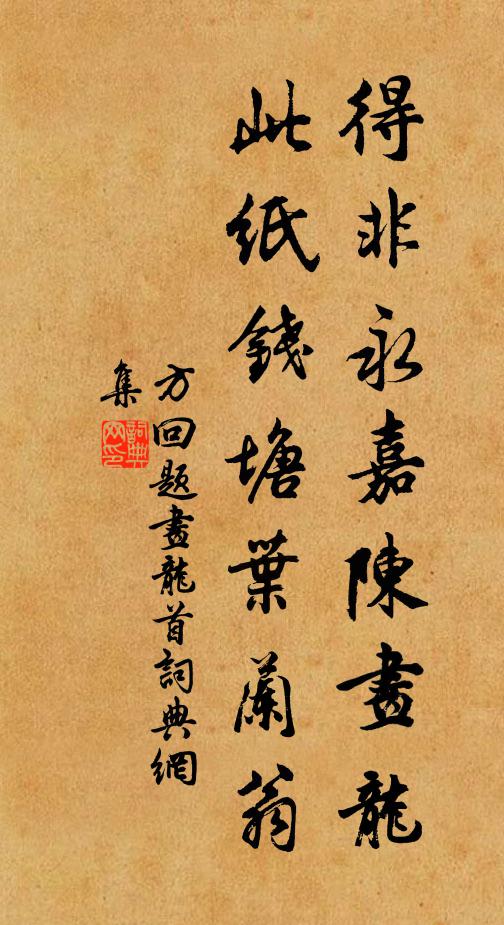 得非永嘉陳畫龍
此紙錢塘葉蘭翁
方回題畫龍首詞典網
集
詞典
網印